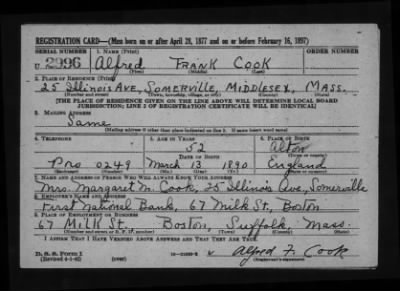 REGISTRATION CARD—(Men born on or after April 28, 1877 and on or before February 16, 1897)
SERIAL NUMBER 1. NAME (Print) ORDER NUMBER
U 2996 Alfred FRANK COOK
(First) (Middle) (Last)
2. PLACE OF RESIDENCE (Print)
25 Illinois Ave, Somerville, Middlesex, Mass.
(Number and street) (Town, township, village, or city) (County) (State)
[THE PLACE OF RESIDENCE GIVEN ON THE LINE ABOVE WILL DETERMINE LOCAL BOARD
JURISDICTION; LINE 2 OF REGISTRATION CERTIFICATE WILL BE IDENTICAL]
3. MAILING ADDRESS
Same
[Mailing address if other than place indicated on line 2. If same insert word same]
4. TELEPHONE 5. AGE IN YEARS 6. PLACE OF BIRTH
52 Alton
DATE OF BIRTH (Town or county)
Pro 0249 March 13 1890 England
(Exchange) (Number) (Mo.) (Day) (Yr.) (State or country)
7. NAME AND ADDRESS OF PERSON WHO WILL ALWAYS KNOW YOUR ADDRESS
Mrs. Margaret M. Cook, 25 Illinois Ave, Somerville
8. EMPLOYER'S NAME AND ADDRESS
First National Bank, 67 Milk St., Boston
9. PLACE OF EMPLOYMENT OR BUSINESS
67 Milk St. Boston, Suffolk, Mass.
(Number and street or R. F. D. number) (Town) (County) (State)
I AFFIRM THAT I HAVE VERIFIED ABOVE ANSWERS AND THAT THEY ARE TRUE.
D. S. S. Form 1
(Revised 4-1-42) (over) Alfred F. Cook